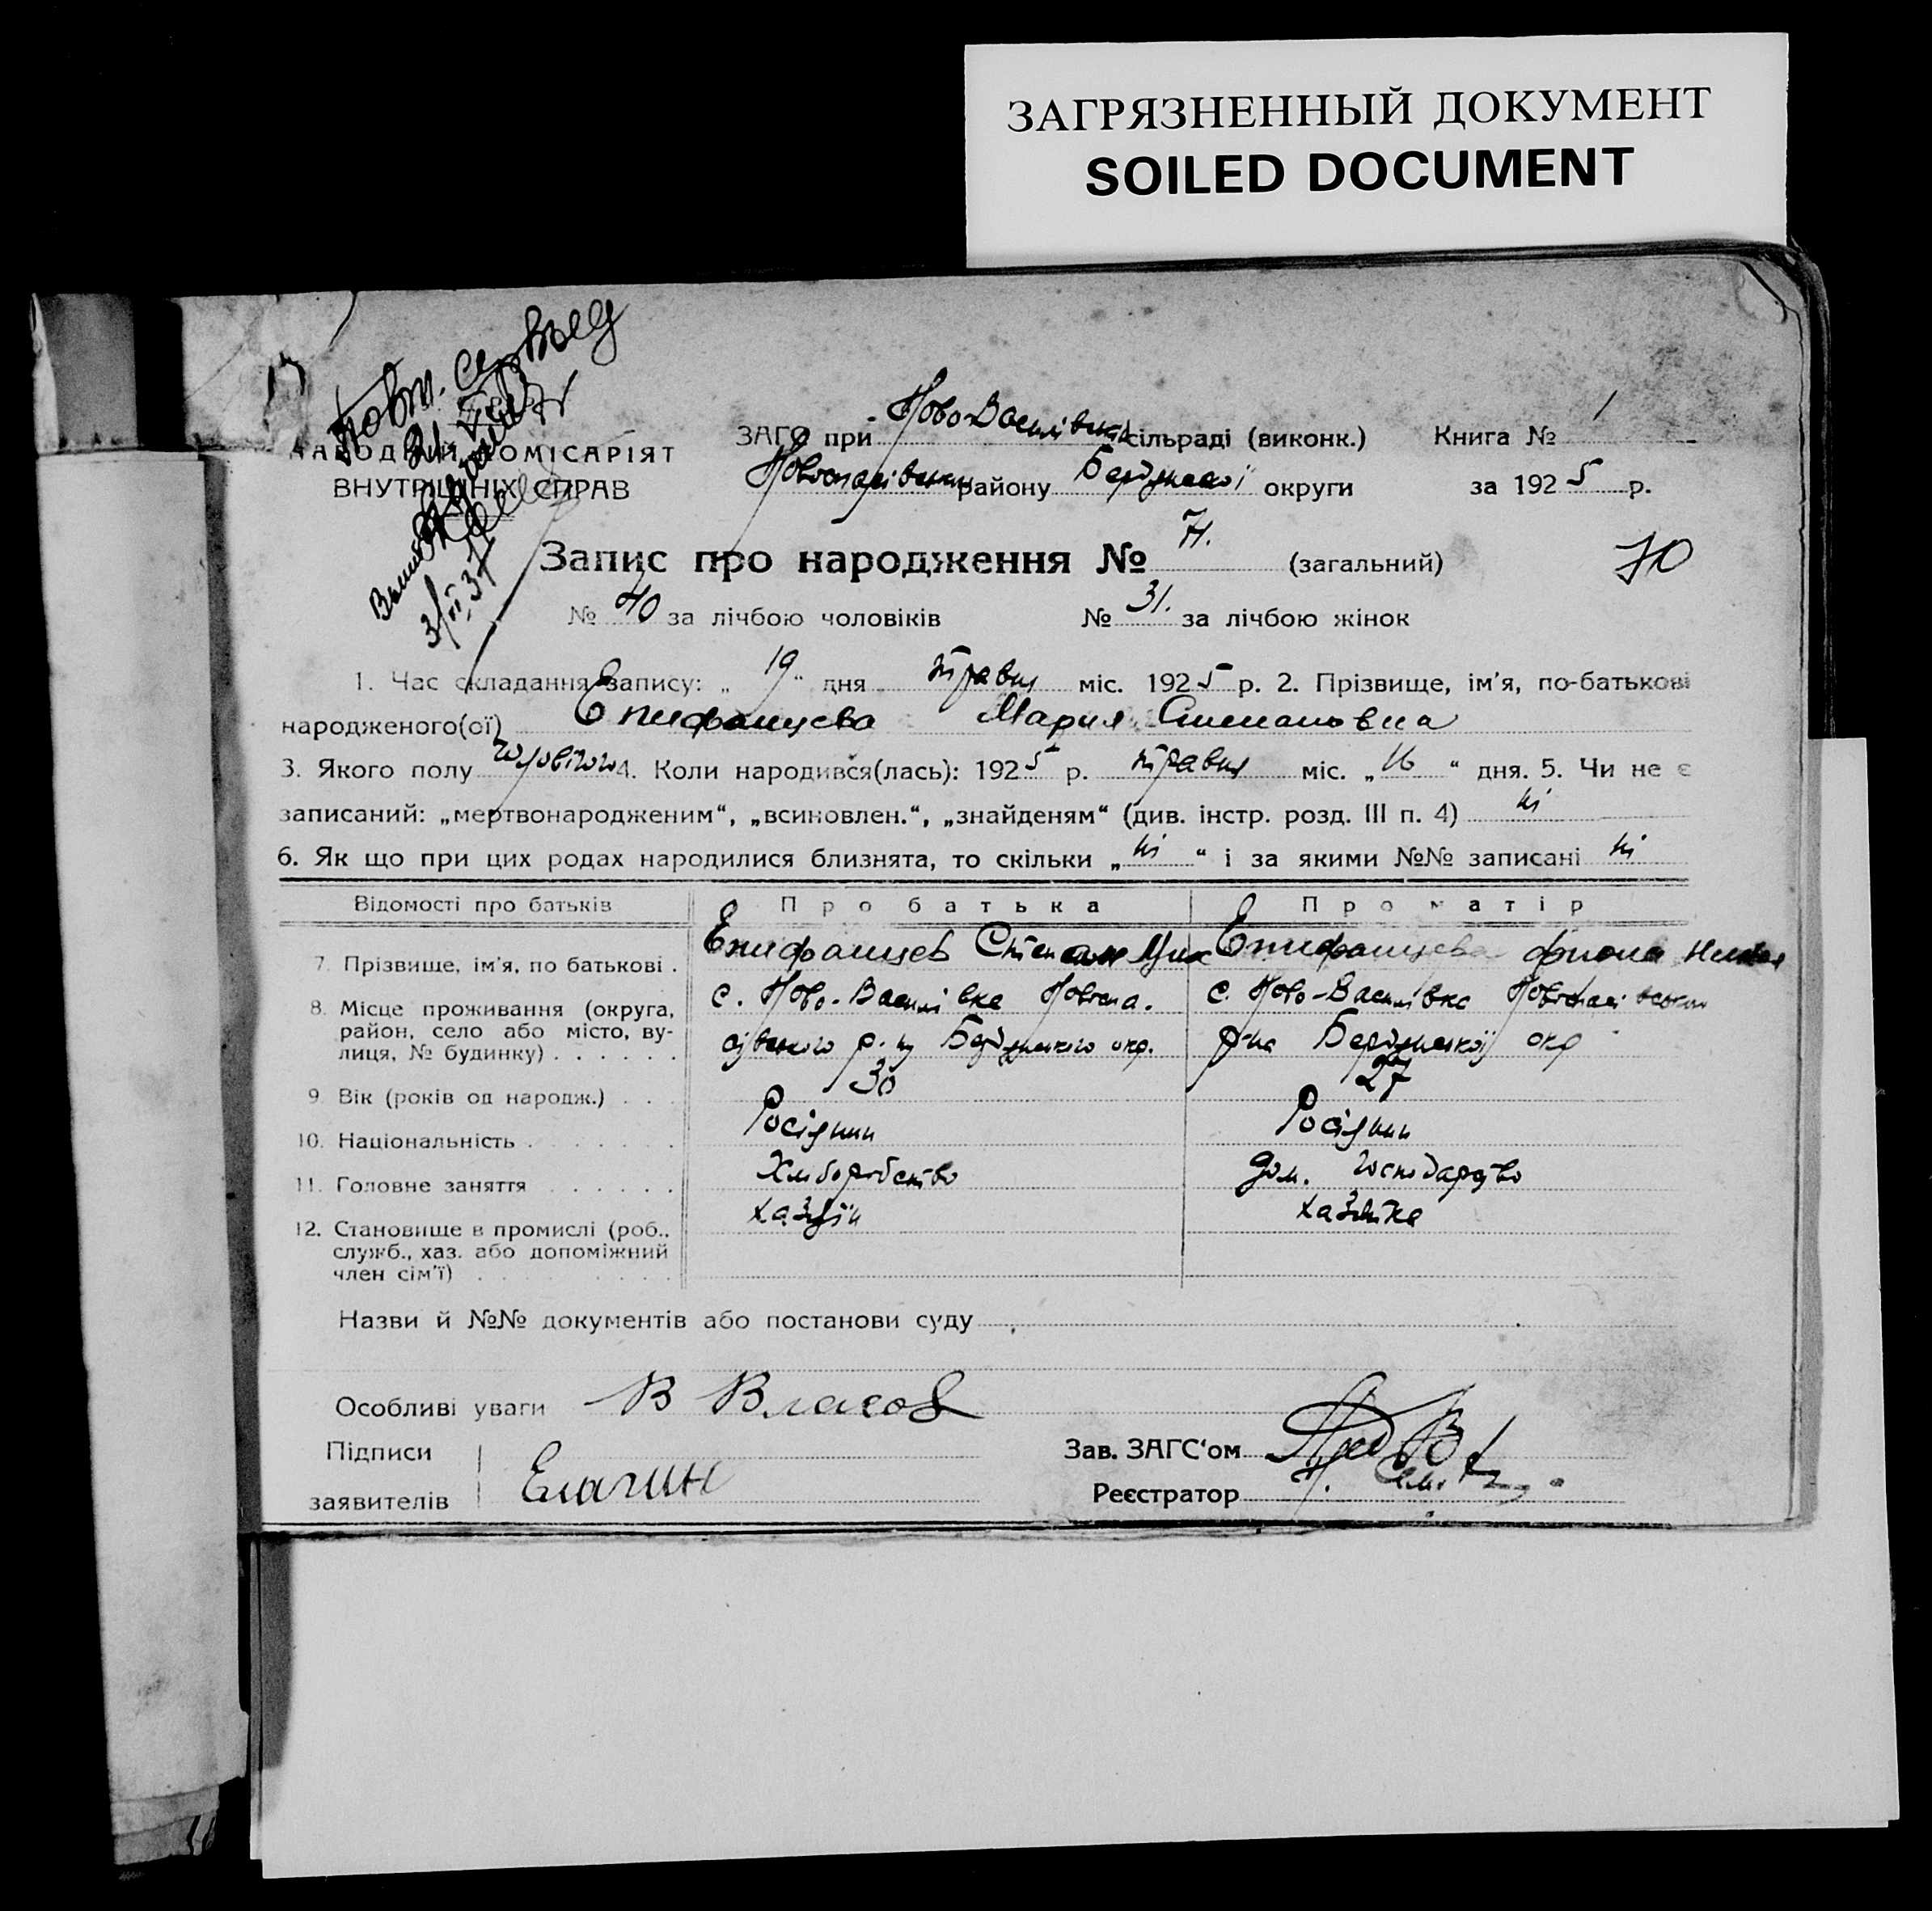 ЗАГРЯЗНЕННЫЙ ДОКУМЕНТ
SOILED DOCUMENT
НАРОДНІЙ КОМІСАРІЯТ
ВНУТРІШНІХ СПРАВ
ЗАГС при Ново-Василівській сільраді (виконк.) Книга № 1
Новоспасівського району Бердянської округи за 1925 р.
Запис про народження № 71. (загальний) 70
№ 40 за лічбою чоловіків № 31. за лічбою жінок
1. Час складання запису: „ 19 “ дня травня міс. 1925 р. 2. Прізвище, ім'я, по-батькові
народженого(ої) Епифанцева Мария Степановна
3. Якого полу чоловічого 4. Коли народився(лась): 1925 р. травня міс. „ 16 “ дня. 5. Чи не є
записаний: „мертвонародженим“, „всиновлен.“, „знайденям“ (див. інстр. розд. III п. 4) ні
6. Як що при цих родах народилися близнята, то скільки „ ні “ і за якими №№ записані ні
Відомості про батьків Про батька Про матір
7. Прізвище, ім'я, по батькові . Епифанцев Степан Епифанцева
8. Місце проживання (округа, с. Ново-Василівка Новоспа- с. Ново-Василівка
район, село або місто, ву-
лиця, № будинку) . . . . . . сівського р-ну Бердянського окр. р-на Бердянської окр
9. Вік (років од народж.) . . . 30 27
10. Національність . . . . . . . Росіянин Росіянин
11. Головне заняття . . . . . . Хліборобство дом. господарство
12. Становище в промислі (роб., хазяїн хазяйка
служб., хаз. або допоміжний
член сім'ї) . . . . . . . . .
Назви й №№ документів або постанови суду
Особливі уваги В Власов
Підписи
заявителів Елагин
Зав. ЗАГС'ом
Реєстратор